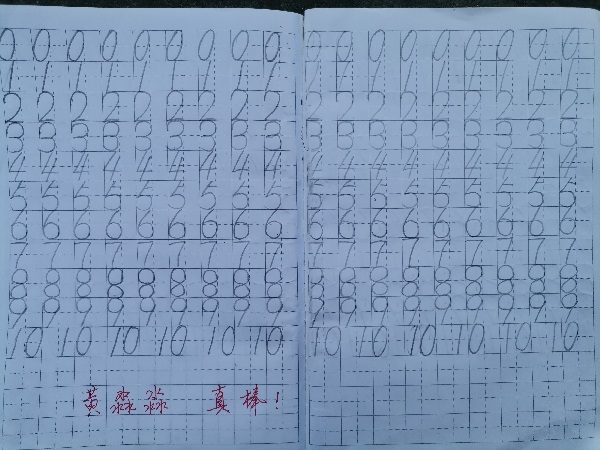 0 0 0 0 0 0 0 0 0
1 1 1 1 1 1 1 1 1
2 2 2 2 2 2 2 2 2
3 3 3 3 3 3 3 3 3
4 4 4 4 4 4 4 4 4
5 5 5 5 5 5 5 5 5
6 6 6 6 6 6 6 6 6
7 7 7 7 7 7 7 7 7
8 8 8 8 8 8 8 8 8
9 9 9 9 9 9 9 9 9
10 10 10 10 10 10
黄淼淼 真棒！
0 0 0 0 0 0 0 0 0
1 1 1 1 1 1 1 1 1
2 2 2 2 2 2 2 2 2
3 3 3 3 3 3 3 3 3
4 4 4 4 4 4 4 4 4
5 5 5 5 5 5 5 5 5
6 6 6 6 6 6 6 6 6
7 7 7 7 7 7 7 7 7
8 8 8 8 8 8 8 8 8
9 9 9 9 9 9 9 9 9
10 10 10 10 10 10